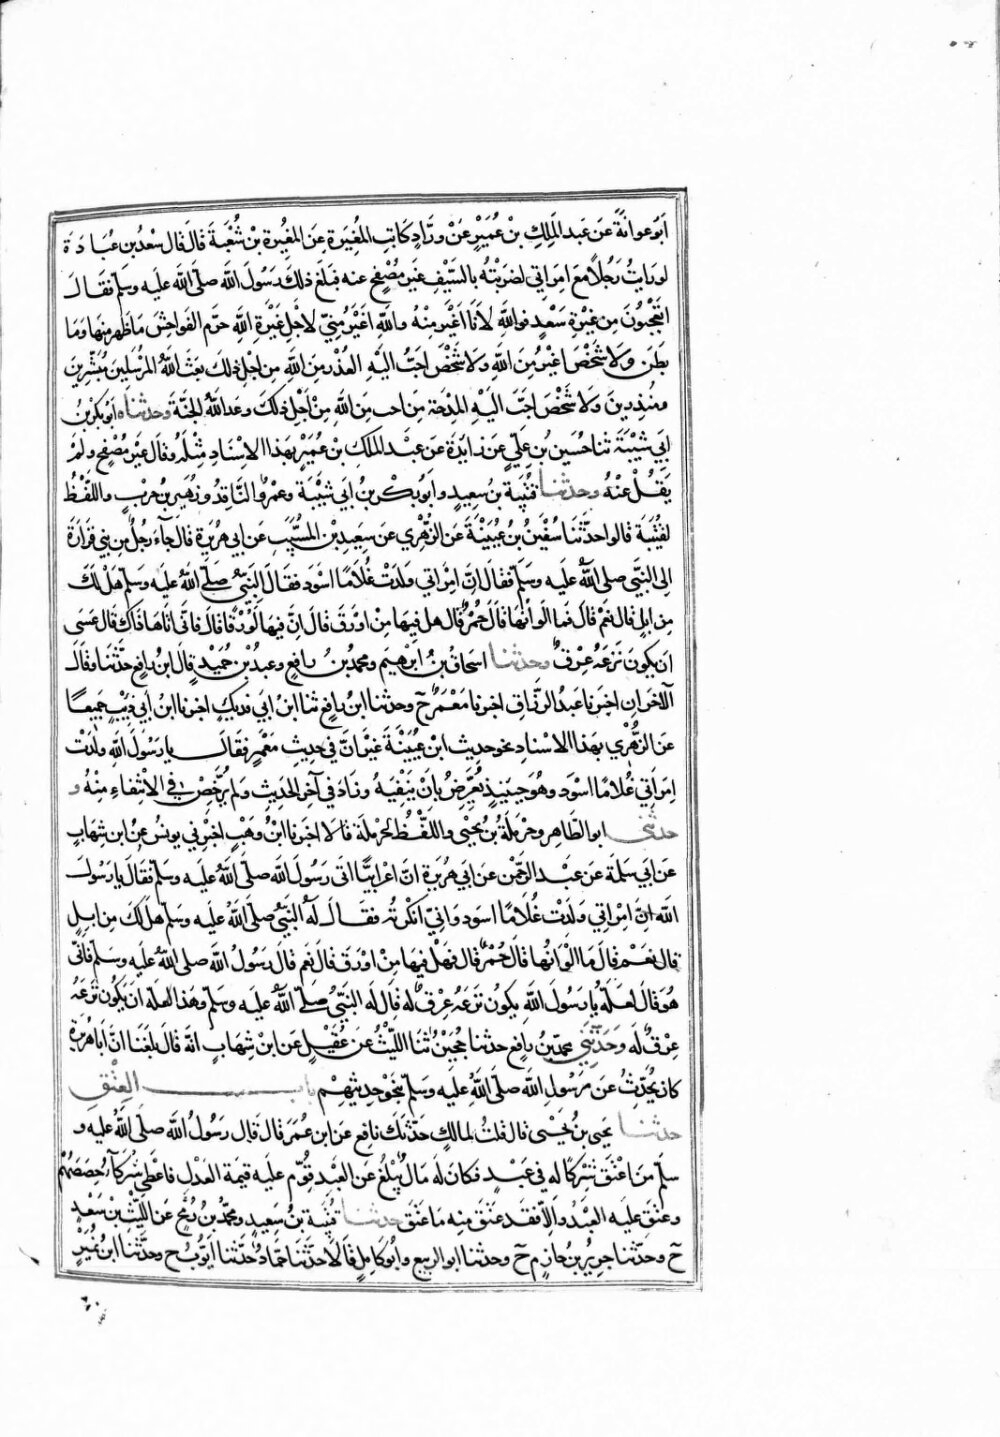 اَبُو عوانةَ عَن عَبد المَلِكِ بْن عُمَيْرٍ عَنْ ورَّادٍ كاتِب المُغِيرَة عَنِ المُغِيرة بْن شُعْبَةَ قالَ قال سَعْدُ بن عُبَادَةَ
لو رَايتُ رَجُلًا مع امرَاتي لضرَبْتُهُ بالسَّيْفِ غيرَ مُصْفِحٍ عنه فبلغ ذلكَ رَسُولَ الله صلّى اللهُ عليه وسلّم فقالَ
اتَعْجَبُونَ مِن غَيْرةِ سَعْدٍ فوالله لَأنَا اَغْيَر مِنْهُ واللهُ اغْيَرُ مِنّي من اجْلِ غَيْرَةِ اللهِ حرّم الفَواحِشَ مَا ظهَر منها ومَا
بطَن ولا شَخْصَ اغْيَرُ مِنَ اللهِ ولا شَخْصَ احَبُّ اليْهِ العُذْر مِنَ اللهِ مِن اجْلِ ذلك بعَثَ اللهُ المُرْسَلِينَ مُبَشِّرِينَ
ومُنذِرِين ولا شَخْصَ احَبُّ اليْهِ المِدْحَة مِنَ اللهِ مِنْ اجْلِ ذلكَ وعَد اللهُ الجنّةَ وحدثناه ابو بكر بن
ابي شَيْبَةَ ثنا حُسَين بن عَليّ عن زَايدَةَ عن عبد الملك بن عُمَيْرٍ بهذا الاِسْنَادِ مِثْلَه وقال غيْر مُصْفِحٍ ولَمْ
يَقُلْ عَنْهُ وحدثنا قتيبة بن سعيدٍ وابو بكر بن ابي شيْبَة وعمْرو النّاقِد وزهَيْر بن حَرْبٍ واللفْظُ
لقُتَيْبَةَ قالوا حدّثَنا سُفْين بن عُيَيْنَةَ عَن الزُّهْري عن سعِيد بن المسَيَّبِ عن ابي هرَيرَةَ قال جَآءَ رجُلٌ مِن بني فزارَةَ
الى النّبيّ صلى الله عليه وسلّم فقال اِنّ امْراَتي ولَدَتْ غُلَامًا اسْوَد فقالَ النبيّ صلّى الله عليه وسلّم هَلْ لكَ
من ابلٍ قال نعَمْ قال فما الوانها قال حُمْرٌ قال هل فيهَا مِن اورَقَ قال اِنّ فيها لَوُرْقًا قال فانّى اتاهَا ذاك قال عَسَى
ان يكون نزعَهُ عِرْقٌ وحدثنا اسحاق بن ابرهيم ومحمّد بن رافعٍ وعبد بن حُمَيْدٍ قال ابن رافع حدّثنا وقال
الآخَران اخبرنا عَبد الرزّاق اخبرنا مَعْمَر ح وحدثنا ابن رافع ثنا ابْن ابي فديكٍ اخبرنا ابن ابي ذِيبٍ جَميعًا
عن الزُّهْري بهذا الاسنادِ نحو حديث ابن عُيَيْنَةَ غيْر انّ في حديث مَعْمَرٍ فقالَ يا رسُولَ اللهِ ولدَتْ
امرَاتي غُلامًا اسوَد وهُو حِينَيذٍ يُعَرِّضُ بأن يَنْفِيَهُ وزاد في آخر الحديثِ ولم يُرخِّصْ له في الاِنْتِفاءِ مِنْهُ و
حدثني ابو الطّاهر وحَرْملةُ بن يحيى واللّفْظُ لحرْمَلة قالا اخبرنا ابن وهْبٍ اخبرني يونس عن ابن شِهَابٍ
عن ابي سلَمةَ عَن عبْد الرّحمن عن ابي هرَيرَة انّ اعْرابيًّا اتى رَسُولَ الله صلى الله عليه وسلّم فقال يا رسُول
الله اِنّ امْرَاتي ولَدَتْ غُلَامًا اسوَد وَانّي انكرْتُه فقالَ لَهُ النّبيُّ صلى الله عليه وسلّم هل لك مِن ابِلٍ
قال نعَم قال مَا الْوَانُهَا قال حُمْرٌ قال فهَلْ فيهَا مِنْ اوْرَق قال نَعَم قال رسُولُ الله صلى الله عليه وسلّم فانّى
هُوَ قالَ لعَلّهُ يا رسُولَ اللهِ يكون نزعَهُ عِرْقٌ له قال له النّبيُّ صلى الله عليه وسلّم وهَذا لعلّه ان يكون نزعَهُ
عِرْقٌ لَه وحَدّثني محمّد بن رافع حدثنا حُجَيْن ثنا اللّيْثُ عن عُقَيْلٍ عَن ابن شِهَابٍ انّه قال بلغَنا انّ ابا هُرَيْرة
كان يُحَدِّثُ عن رَسُولِ الله صلى الله عليه وسلّم بنحو حديثِهم باب العِتْقِ
حدثنا يَحيى بن يَحْيى قال قلتُ لمالكٍ حدّثكَ نافع عن ابن عُمَرَ قال قال رسُولُ الله صلى الله عليه و
سلّم مَنْ اعْتَقَ شِرْكًا له في عَبْدٍ فكانَ لَه مَالٌ يَبْلُغُ ثمن العَبْدِ قُوِّم عليه قيمَة العَدْل فاعْطى شُركَآءَهُ حِصَصَهُمْ
وعَتَقَ عليه العَبْدُ والّا فقد عتقَ مِنه مَا عَتَقَ حدثنا قتيبة بن سعيدٍ ومحمّد بن رُمْحٍ عن اللّيْث بن سعْدٍ
ح وحدّثنا جرير بن حازِم ح وحدثنا ابو الربيع وابُو كامِلٍ قالا حدّثنا حَمّادٌ حدّثنا ايّوبُ ح وحدّثنا ابن نُمَيْر